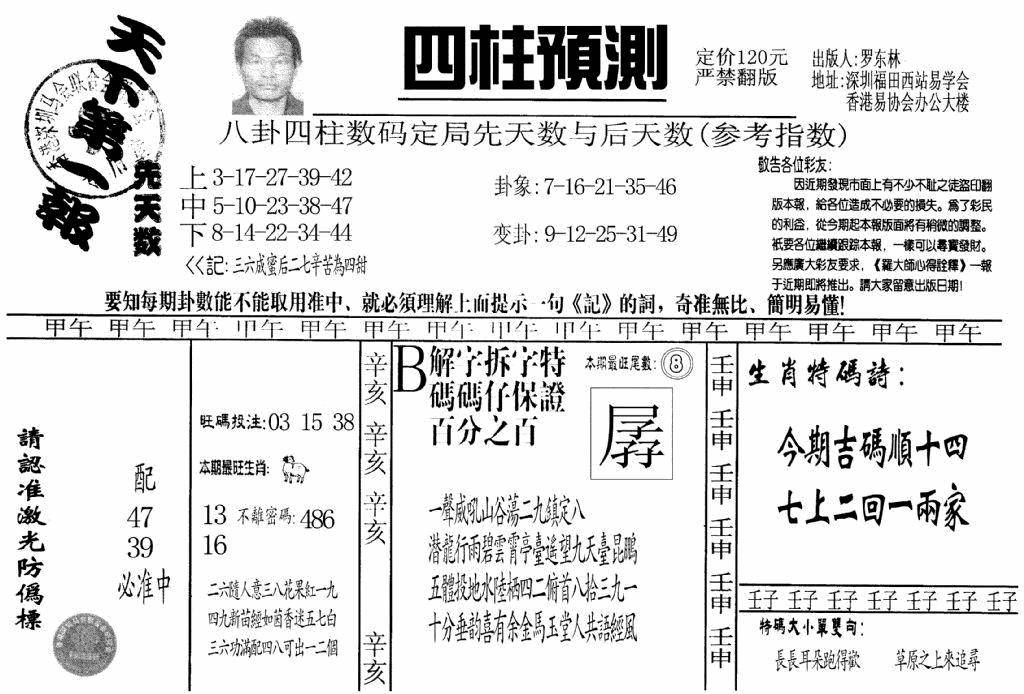 天下第一報
四柱預測
定价120元
严禁翻版
出版人:罗东林
地址:深圳福田西站易学会
香港易协会办公大楼
八卦四柱数码定局先天数与后天数(参考指数)
先天数
上3-17-27-39-42
中5-10-23-38-47
下8-14-22-34-44
<<記:三六成蜜后二七辛苦為四甜
卦象:7-16-21-35-46
变卦:9-12-25-31-49
敬告各位彩友:
因近期發現市面上有不少不耻之徒盜印翻
版本報,給各位造成不必要的損失。爲了彩民
的利益,從今期起本報版面將有稍微的調整。
衹要各位繼續跟踪本報,一樣可以尋寶發財。
另應廣大彩友要求,《羅大師心得詮釋》一報
于近期即將推出。請大家留意出版日期!
要知每期卦數能不能取用准中、就必須理解上面提示一句《記》的詞,奇准無比、簡明易懂!
甲午 甲午 甲午 甲午 甲午 甲午 甲午 甲午 甲午 甲午 甲午 甲午 甲午 甲午 甲午
請認准激光防僞標
配
47
39
必准中
旺碼投注:03 15 38
本期最旺生肖:
13 不離密碼:486
16
二六隨人意三八花果紅一九
四九新苗經如茵香迷五七白
三六功滿配四八可出一二個
辛亥 辛亥 辛亥 辛亥
B解字拆字特
碼碼仔保證
百分之百
本期最旺尾數:8
一聲威吼山谷蕩二九鎮定八
潜龍行雨碧雲霄亭臺遙望九天臺昆鵬
五體投地水陸栖四二俯首八拾三九一
十分垂韵喜有余金馬玉堂人共語經風
壬申 壬申 壬申 壬申 壬申 壬申
生肖特碼詩:
今期吉碼順十四
七上二回一兩家
壬子 壬子 壬子 壬子 壬子 壬子 壬子
特碼大小單雙句:
長長耳朵跑得歡 草原之上來追尋